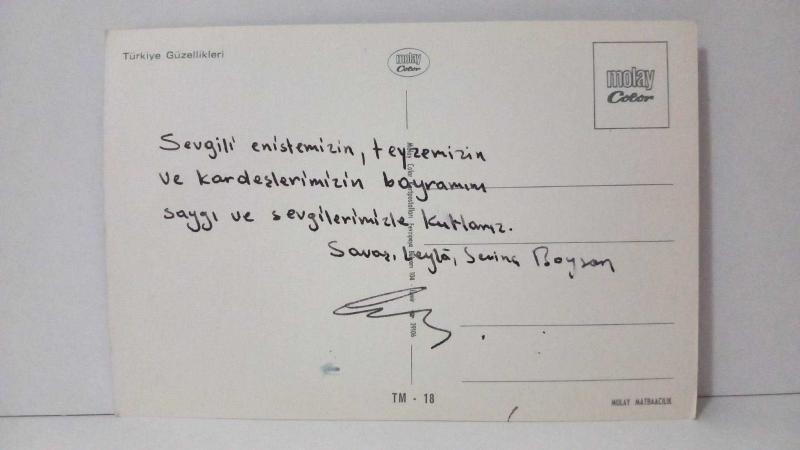 Türkiye Güzellikleri
molay
Color
molay
Color
Sevgili enistemizin, teyzemizin
ve kardeşlerimizin bayramını
saygı ve sevgilerimizle kutlarız.
Savaş, Leylâ, Sevinç Boysan
TM - 18
MOLAY MATBAACILIK